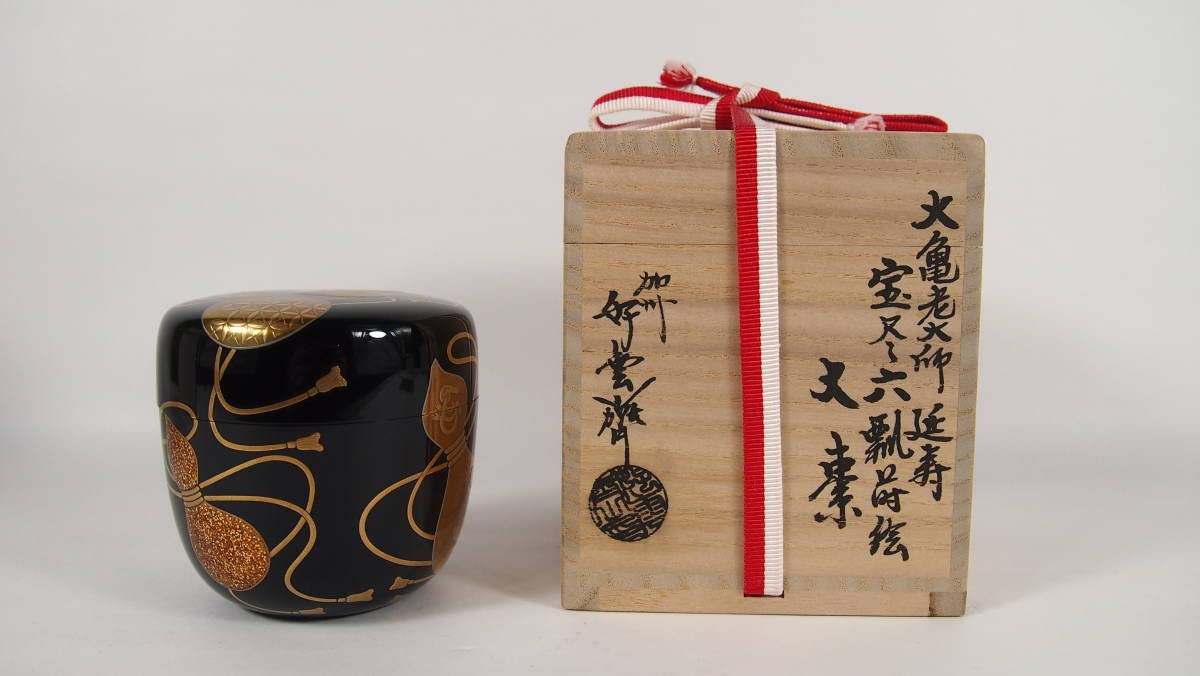 大亀老大師 延寿
宝尽六瓢蒔絵
大棗
加州 好雲齋